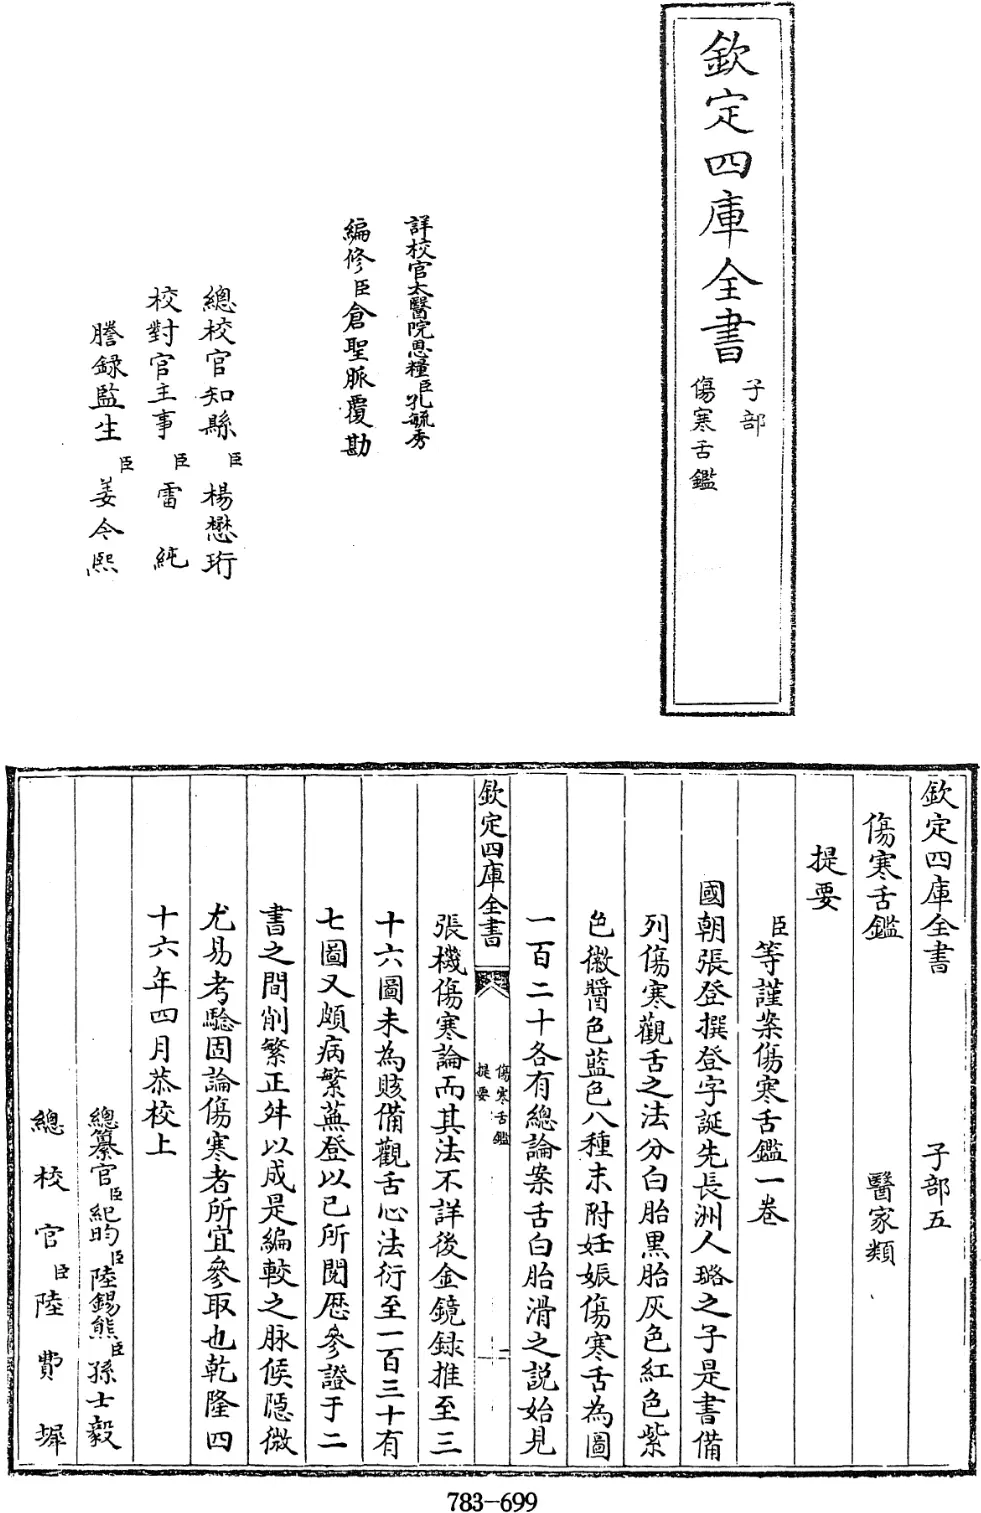 欽定四庫全書
子部
傷寒舌鑑
詳校官太醫院恩糧臣孔毓秀
編修臣倉聖脈覆勘
總校官知縣臣楊懋珩
校對官主事臣雷純
謄錄監生臣姜令熙
欽定四庫全書 子部五
傷寒舌鑑 醫家類
提要
臣等謹案傷寒舌鑑一卷
國朝張登撰登字誕先長洲人璐之子是書備
列傷寒觀舌之法分白胎黑胎灰色紅色紫
色黴醬色藍色八種末附妊娠傷寒舌為圖
一百二十各有總論案舌白胎滑之說始見
欽定四庫全書
傷寒舌鑑
提要
一
張機傷寒論而其法不詳後金鏡錄推至三
十六圖未為賅備觀舌心法衍至一百三十有
七圖又頗病繁蕪登以已所閱歷參證于二
書之間削繁正舛以成是編較之脉候隱微
尤易考驗固論傷寒者所宜參取也乾隆四
十六年四月恭校上
總纂官臣紀昀臣陸錫熊臣孫士毅
總校官臣陸費墀
783-699